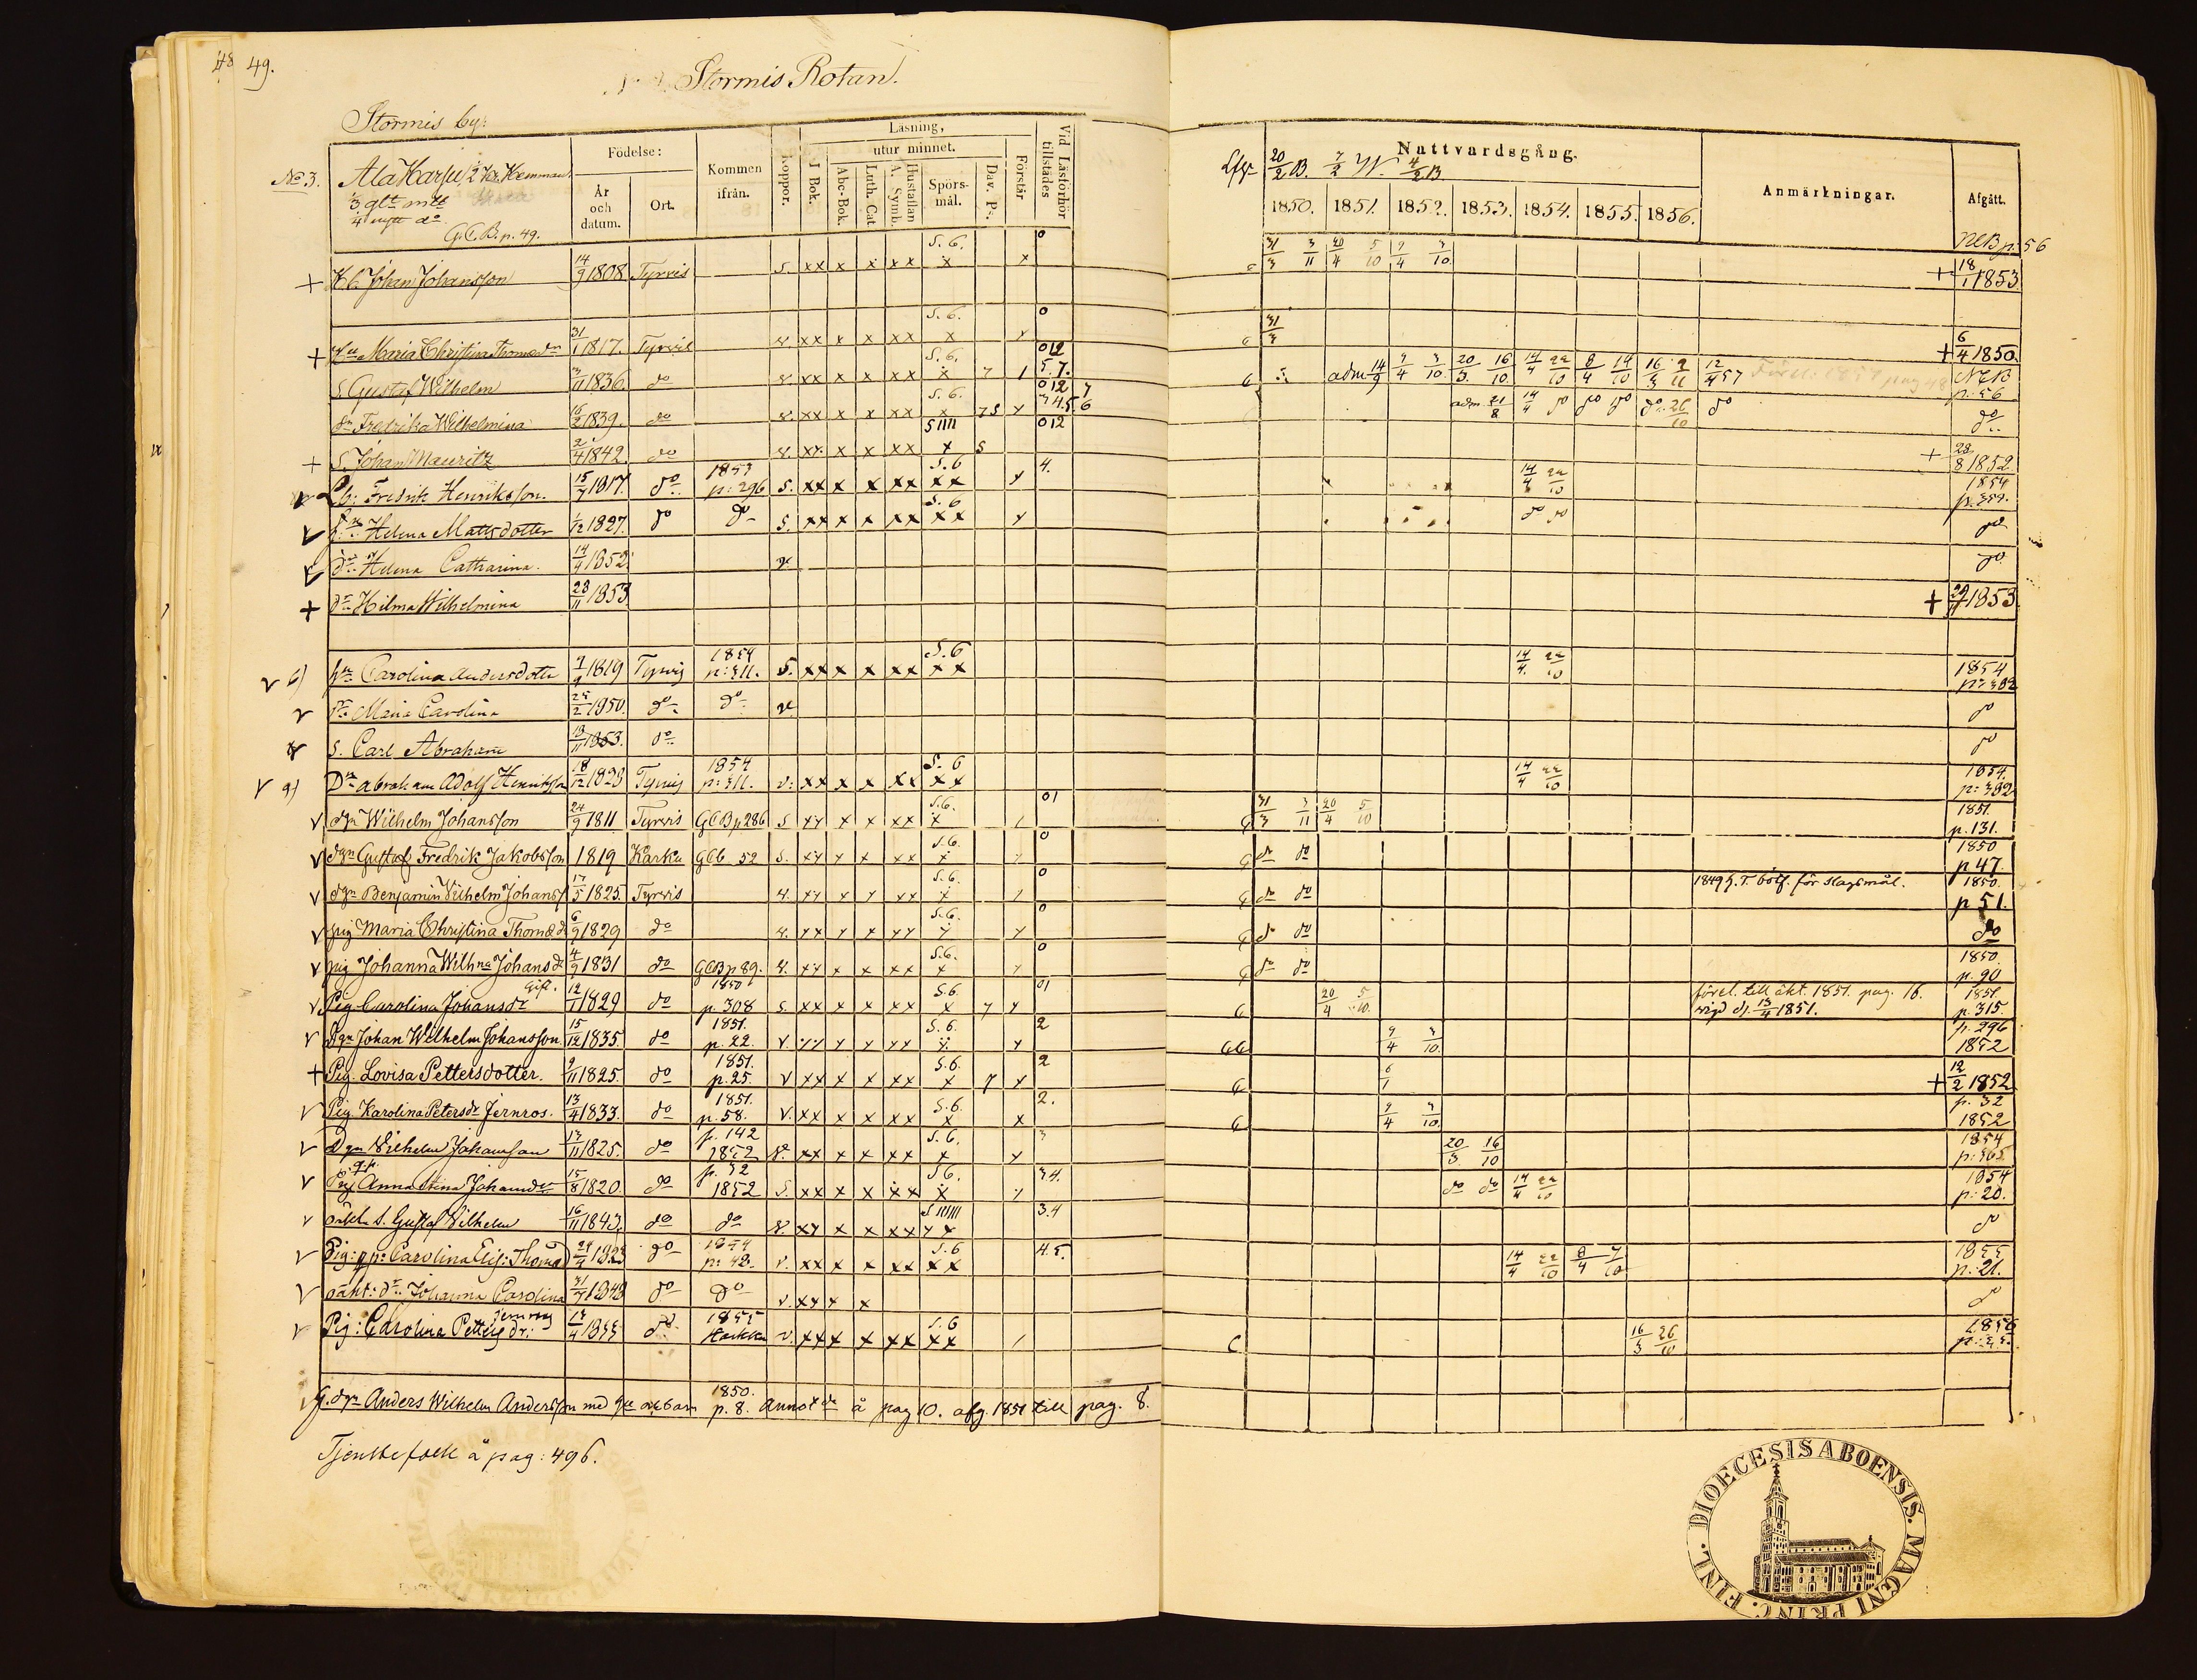 48 49.
Stormis Rotan.
Stormis by:
No 3. Ala Karju
G.C.B. p. 49.
Födelse: År och datum. Ort. Kommen ifrån. Koppor. I Bok. Läsning, utur minnet. Abc-Bok. Luth. Cat. Hustaflan A. Symb. Spörs-mål. Dav. Ps. Förstår Vid Läsförhör tillstädes
Nattvardsgång. 1850. 1851. 1852. 1853. 1854. 1855. 1856. Anmärkningar. Afgått.
20/2 B. 4/2 B.
NCB p: 56
+ Johan Johansson 14/9 1808 Tyrvis s. xx x x xx S. 6. x x 0 31/3 3/11 20/4 5/10 9/4 3/10 + 18/1 1853.
+ Maria Christina Thomasdr 31/1 1817. Tyrvis v. xx x x xx S. 6. x 0 31/3 + 6/4 1850
S. Gustaf Wilhelm 3/11 1836 do v. xx x x xx S. 6. x 7 1 012 5. 7. adm 14/9 9/4 3/10. 20/3. 16/10. 14/4 22/10 8/4 14/10 12/4 57 NCB p: 56
dr Fredrika Wilhelmina 1839. do v. xx x x xx S. 6. x 012 adm. 21/8 14/4 do do do do 26/10 do do
+ S. Johan Mauritz 2/4 1842. do v. xx x x xx x 5 012 + 1852.
Fredrik Henriksson. 1817. do p: 296 S. xx x x xx S. 6 xx 4. 14/4 22/10 1854
v Helena Mattsdotter 1/12 1827. do do S. xx x x xx S. 6 xx do do do
v dr: Helena Catharina. 14/4 1852 v do
+ dr: Hilma Wilhelmina 23/11 1853 + 1853.
v 6) Carolina Andersdotter 1819 Tyrvis 1854 S. xx x x xx S. 6 xx 14/4 22/10 1854
v dr: Maria Carolina 1850. do do v do
v S. Carl Abraham 1853. do do
v 9) Abraham Adolf Henriksson 18/12 1823 Tyrvis 1854 v: xx x x xx S. 6 xx 14/4 22/10 1854.
v dgn Wilhelm Johansson 24/9 1811 Tyrvis GCB p 286 S xx x x xx S. 6. x 01 31/3 3/11 20/4 5/10 1851. p. 131.
v dgn Gustaf Fredrik Jakobsson 1819 Karku GCB 52 S. xx x x xx S. 6. x 0 do do 1850 p 47.
v dgn Benjamin Wilhelm Johanss 17/5 1825. Tyrvis v. xx x x xx S. 6. x 0 do do 1849 för slagsmål. 1850. p 51.
v pig Maria Christina Thomæ d 6/9 1829 do v. xx x x xx S. 6. x 0 do do do
v pig Johanna Wilhna Johans d 4/9 1831 do GCB p 89. v. xx x x xx S. 6. x 0 do do 1850. p. 90
v Pig Carolina Johansdr Gift. 12/1 1829 do 1850 p. 308 S. xx x x xx S. 6 x 7 x 01 20/4 5/10. förel. till äkt. 1851. pag. 16. vigd d. 13/4 1851. 1851. p. 315.
v Dgn Johan Wilhelm Johansson 15/12 1835. do 1851. p. 22. v. xx x x xx S. 6. x x 2 9/4 3/10. p. 296 1852
+ Pig. Lovisa Pettersdotter. 9/11 1825. do 1851. p. 25. v xx x x xx S. 6. x 7 x 2 6/1 + 12/2 1852
v Pig. Karolina Petersdr Jernros. 13/4 1833. do 1851. p. 58. v. xx x x xx S. 6. x x 2. 9/4 3/10. p. 32 1852
v Dgn Wilhelm Johansson 13/11 1825. do p. 142 1852 v. xx x x xx S. 6. x x 3 20/3. 16/10 1854
v Pig Anna Stina Johansdr 15/8 1820. do p. 32 1852 S. xx x x xx S 6. x 3.4. do do 14/4 22/10 1854 p: 20.
v oäkt. S. Gustaf Wilhelm 16/11 1843. do do v. xx x x xx 3.4 do
v Pig: Carolina Elis: Thoma d do p: 48. v. xx x x xx S. 6 xx 4. 5. 14/4 22/10 8/4 1855 p: 21.
v oäkt: dr: Johanna Carolina 1848 do do v. xx x x do
v Pig: Carolina Petters dr: do 1855 v. xx x x xx S. 6 xx 16/3 26/10 1856
v G. dgn Anders Wilhelm Andersson med 1850. p. 8. annot de å pag 10. afg. 1851 till pag. 8.
Tjenstefolk å pag: 496.
DIOECESIS ABOENSIS. MAGNI PRINC. FINL.